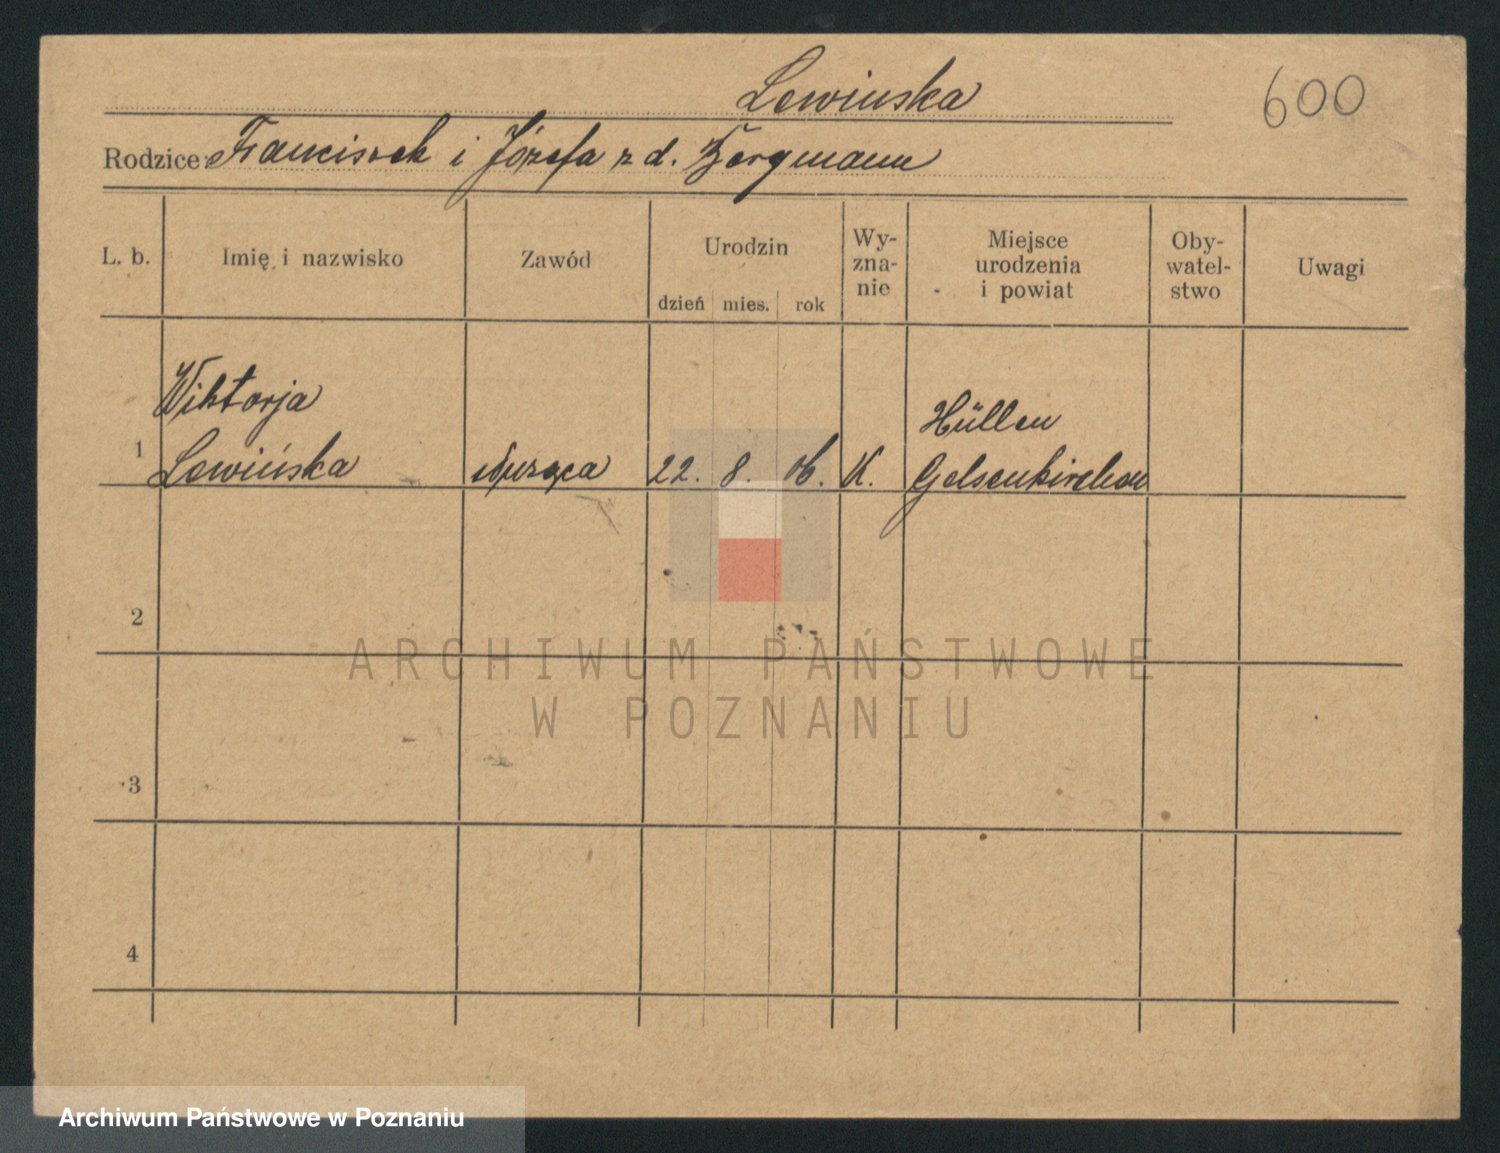 Lewinska
600
Rodzice: Franciszek i Józefa z d. Bergmann
L. b. Imię i nazwisko Zawód Urodzin dzień mies. rok Wy-zna-nie Miejsce urodzenia i powiat Oby-watel-stwo Uwagi
Wiktorja Hüllen
1 Lewińska służąca 22. 8. 06. K. Gelsenkirchen
2
3
4
ARCHIWUM PAŃSTWOWE
W POZNANIU
Archiwum Państwowe w Poznaniu